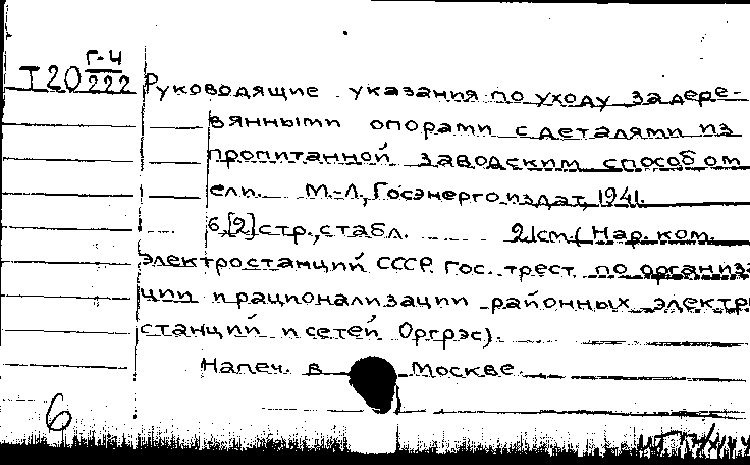 Т20 Г-4/222
Руководящие указания по уходу за дере-
вянными опорами с деталями из
пропитанной заводским способом
ели. М.-Л., Госэнергоиздат, 1941.
6,[2] стр., с табл. 21 см. (Нар. ком.
электростанций СССР. Гос. трест по организа
ции и рационализации районных электро
станций и сетей Оргрэс).
Напеч. в Москве.
6